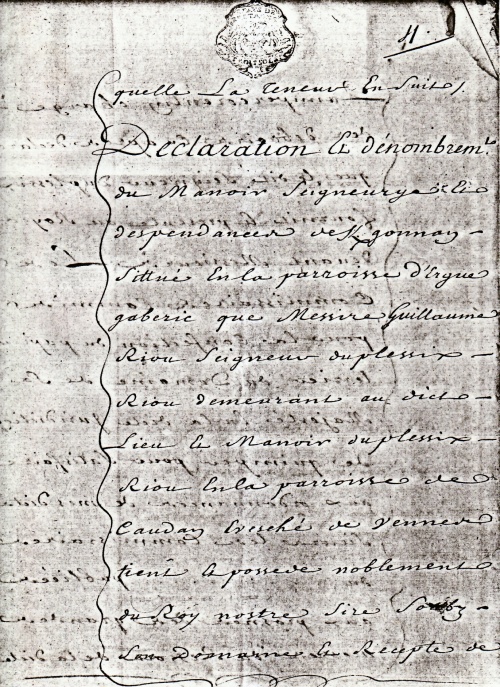 41
quelle La teneur En Suit
Declaration Et dénombremt
du Manoir Seigneurye et
despendances de Kgonnay -
Sittué En la parroisse d'Ergue
gaberic que Messire Guillaume
Riou Seigneur du plessix -
Riou demeurant au dict -
Lieu et Manoir du plessix -
Riou En la parroisse de
Caudan Evesché de Vennes
tient et possede noblement
du Roy nostre Sire Soubz -
Son Domaine et Recepte de